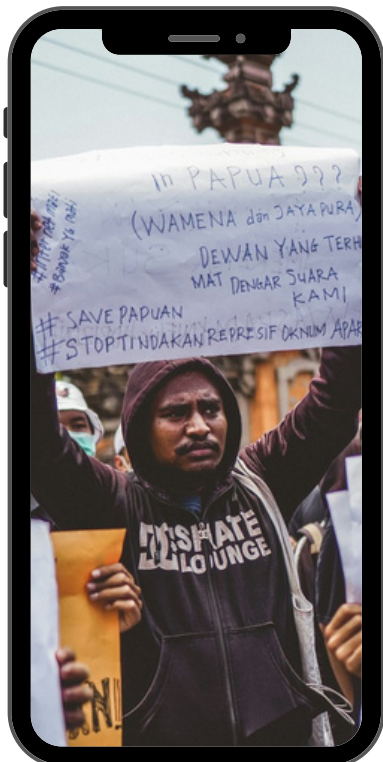 in PAPUA ???
(WAMENA dan JAYAPURA)
DEWAN YANG TERH
MAT DENGAR SUARA
KAMI
# SAVE PAPUAN
# STOPTINDAKAN REPRESIF OKNUM APAR
#Banyak Yg mati
LOUNGE
N!